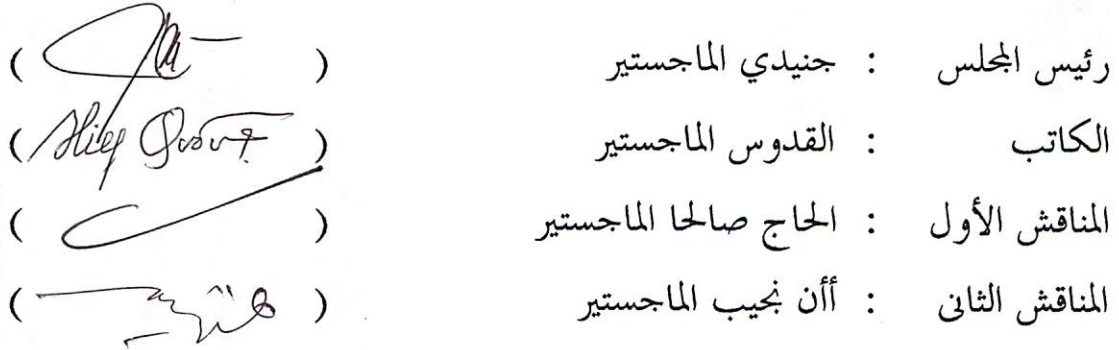 رئيس المجلس : جنيدي الماجستير ( )
الكاتب : القدوس الماجستير ( )
المناقش الأول : الحاج صالحا الماجستير ( )
المناقش الثانى : أأن نجيب الماجستير ( )